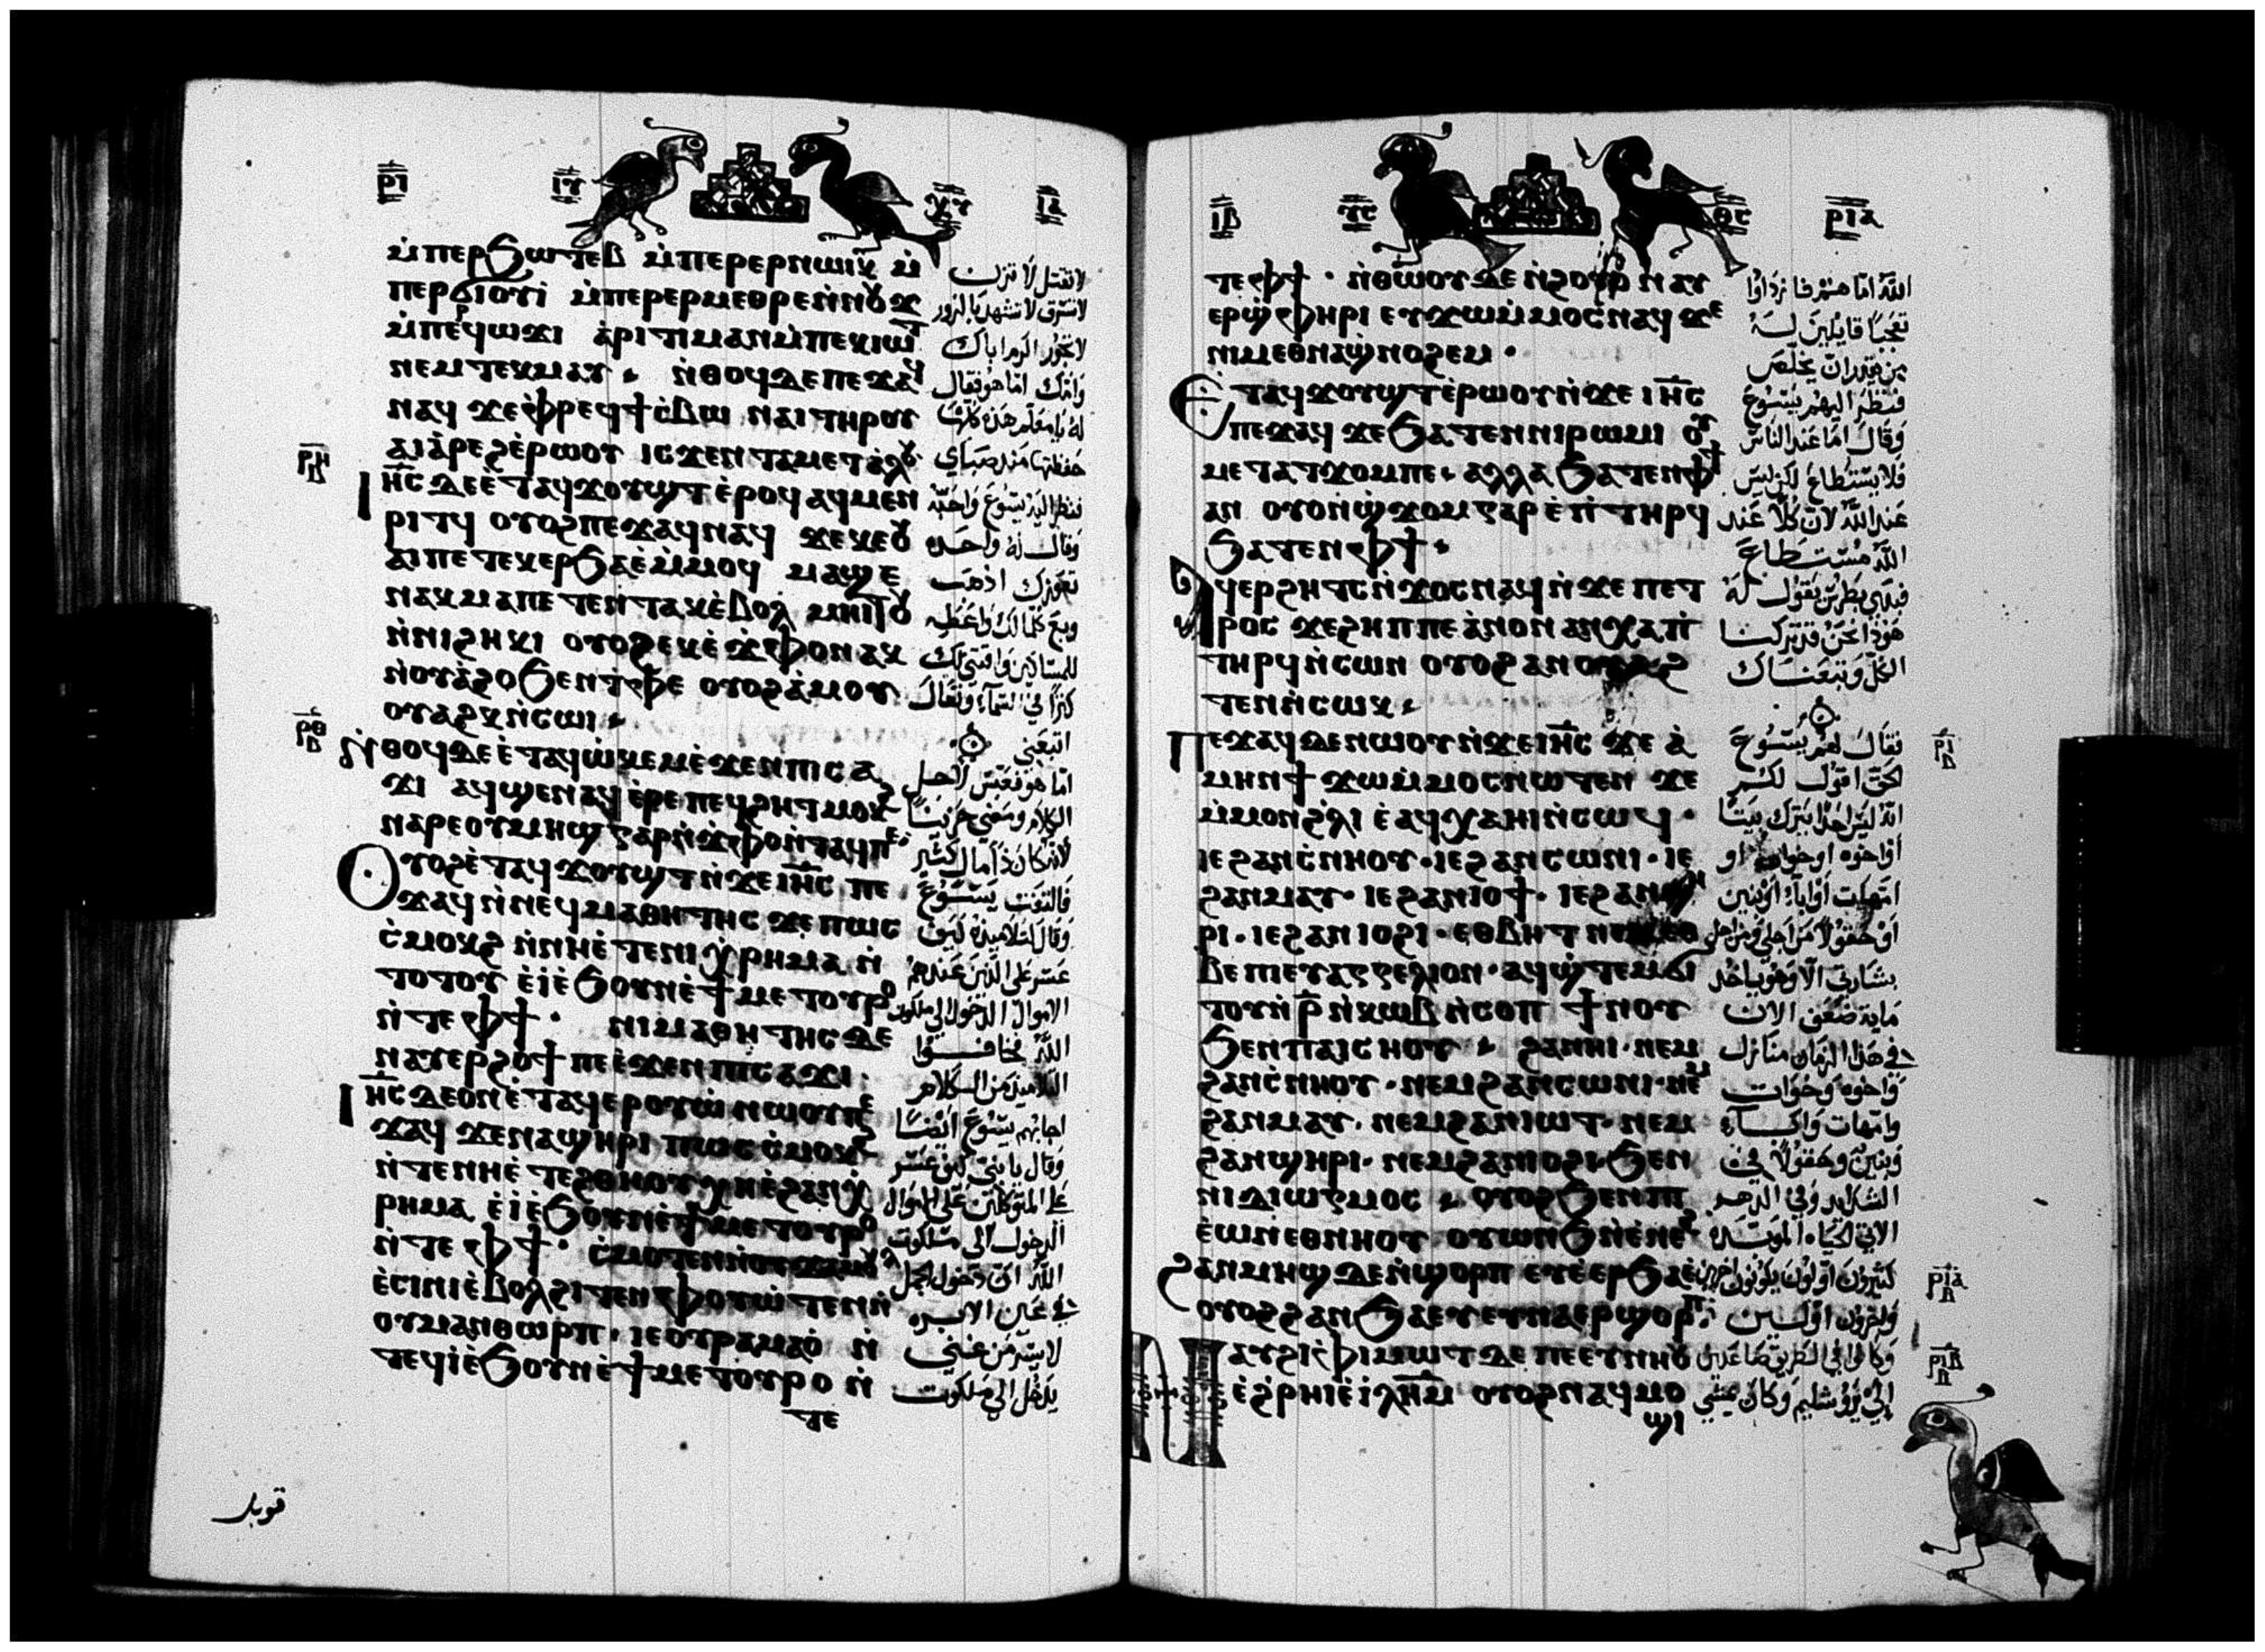 ⲣⲓ
ⲙ̀ⲡⲉⲣϧⲱⲧⲉⲃ ⲙ̀ⲡⲉⲣⲉⲣⲛⲱⲓⲕ ⲙ̀
ⲡⲉⲣϭⲓⲟⲩⲓ̀ ⲙ̀ⲡⲉⲣⲉⲣⲙⲉⲑⲣⲉⲛ̀ⲛⲟⲩϫ
ⲙ̀ⲡⲉⲣϥⲱϫⲓ ⲁ̀ⲣⲓⲧⲓⲙⲁⲛⲙ̀ⲡⲉⲕⲓⲱⲧ
ⲛⲉⲙⲧⲉⲕⲙⲁⲩ ⲛ̀ⲑⲟϥⲇⲉⲡⲉϫⲁϥ
ⲛⲁϥ ϫⲉⲫ̀ⲣⲉϥϯⲥ̀ⲃⲱ ⲛⲁⲓⲧⲏⲣⲟⲩ
ⲁⲓⲁ̀ⲣⲉϩⲉ̀ⲣⲱⲟⲩ ⲓⲥϫⲉⲛ ⲧⲁⲙⲉⲧⲁ̀ⲗⲟⲩ
ⲓⲏ̅ⲥ ⲇⲉⲉ̀ⲧⲁϥϫⲟⲩϣⲧ ⲉ̀ⲣⲟϥ ⲁϥⲙⲉⲛ
ⲣⲓⲧϥ ⲟⲩⲟϩⲡⲉϫⲁϥⲛⲁϥ ϫⲉⲕⲉⲟⲩ
ⲁⲓⲡⲉⲧⲉⲕⲉⲣϧⲁⲉ̀ⲙ̀ⲙⲟϥ ⲙⲁϣⲉ
ⲛⲁⲕ ⲙⲁⲡⲉⲧⲉⲛⲧⲁⲕⲉ̀ⲃⲟⲗ ⲙⲏⲓⲧⲟⲩ
ⲛ̀ⲛⲓϩⲏⲕⲓ ⲟⲩⲟϩⲉⲕⲉ̀ϫ̀ⲫⲟⲛⲁⲕ
ⲛ̀ⲟⲩⲁ̀ϩⲟ ϧⲉⲛⲧ̀ⲫⲉ ⲟⲩⲟϩⲁ̀ⲙⲟⲩ
ⲟⲩⲁϩⲕⲛ̀ⲥⲱⲓ
ⲛ̀ⲑⲟϥⲇⲉⲉ̀ⲧⲁϥⲱ̀ⲕⲉⲙⲉ̀ϫⲉⲛⲡⲓⲥⲁ
ϫⲓ ⲁϥϣⲉⲛⲁϥ ⲉ̀ⲣⲉ ⲡⲉϥϩⲏⲧⲙⲟⲕϩ
ⲛⲁⲣⲉⲟⲩⲙⲏϣ ⲅⲁⲣⲛ̀ϫ̀ⲫⲟⲛ̀ⲧⲁϥⲡⲉ
ⲟⲩⲟϩⲉ̀ⲧⲁϥϫⲟⲩϣⲧⲛ̀ϫⲉⲓⲏ̅ⲥ ⲡⲉ
ϫⲁϥ ⲛ̀ⲛⲉϥⲙⲁⲑⲏⲧⲏⲥ ϫⲉ ⲡⲱⲥ
ⲥ̀ⲙⲟⲕϩ ⲛ̀ⲛⲏⲉ̀ⲧⲉⲛⲓⲭ̀ⲣⲏⲙⲁ ⲛ̀
ⲧⲟⲧⲟⲩ ⲉ̀ⲓ̀ⲉ̀ϧⲟⲩⲛⲉ̀ϯⲙⲉⲧⲟⲩⲣⲟ
ⲛ̀ⲧⲉⲫϯ ⲛⲓⲙⲁⲑⲏⲧⲏⲥⲇⲉ
ⲛⲁⲩⲉⲣϩⲟϯⲡⲉⲉ̀ϫⲉⲛⲡⲓⲥⲁϫⲓ
ⲓⲏ̅ⲥ ⲇⲉⲟⲛⲉ̀ⲧⲁϥⲉⲣⲟⲩⲱ̀ ⲛⲱⲟⲩⲡⲉ
ϫⲁϥ ϫⲉⲛⲁϣⲏⲣⲓ ⲡⲱⲥ ⲥ̀ⲙⲟⲕϩ
ⲛ̀ⲧⲉⲛⲏⲉ̀ⲧⲉϩⲑⲏⲟⲩ ⲭⲏⲉ̀ϩⲁⲛⲭ̀
ⲣⲏⲙⲁ ⲉ̀ⲓ̀ⲉ̀ϧⲟⲩⲛⲉ̀ϯⲙⲉⲧⲟⲩⲣⲟ
ⲛ̀ⲧⲉⲫϯ ⲥ̀ⲙⲟⲧⲉⲛⲛ̀ⲟⲩϫⲁⲙⲟⲩⲗ
ⲉ̀ⲥⲓⲛⲓⲉ̀ⲃⲟⲗϩⲓⲧⲉⲛⲫⲟⲩⲱ̀ⲧⲉⲛⲛ̀
ⲟⲩⲙⲁⲛⲑⲱⲣⲡ ⲓⲉⲟⲩⲣⲁⲙⲁⲟ̀ ⲛ̀
ⲧⲉϥⲓ̀ⲉ̀ϧⲟⲩⲛⲉ̀ϯⲙⲉⲧⲟⲩⲣⲟ ⲛ̀
ⲧⲉ
لا تقتل لا تزن
لا تسرق لا تشهد بالزور
لا تجور اكرم اباك
وامك اما هو فقال
له يا معلم هذه كلها
حفظتها منذ صباي
فنظر اليه يسوع واحبه
وقال له واحده
تعوزك اذهب
وبع كلما لك واعطه
للمساكين واقتني لك
كنزا في السماء وتعال
اتبعني
الكلام ومضى حزينا
لانه كان ذا مال كثير
فالتفت يسوع
وقال لتلاميذه كيف
عسر على الذين عندهم
الاموال الدخول الى ملكوت
الله فخافوا
التلاميذ من الكلام
اجابهم يسوع ايضا
وقال يا بني كيف عسر
على المتوكلين على الاموال
الدخول الى ملكوت
في عين الابره
لا يسر من غني
يدخل الى ملكوت
قوبل
ⲣⲓⲁ
ⲧⲉⲫϯ ⲛ̀ⲑⲱⲟⲩⲇⲉ ⲛ̀ϩⲟⲩⲟ̀ ⲛⲁⲩ
ⲉⲣϣ̀ⲫⲏⲣⲓ ⲉⲩϫⲱⲙ̀ⲙⲟⲥⲛⲁϥ ϫⲉ
ⲛⲓⲙⲉⲑⲛⲁϣ̀ⲛⲟϩⲉⲙ
ⲉⲧⲁϥϫⲟⲩϣⲧⲉ̀ⲣⲱⲟⲩⲛ̀ϫⲉ ⲓⲏ̅ⲥ
ⲡⲉϫⲁϥ ϫⲉϧⲁⲧⲉⲛⲛⲓⲣⲱⲙⲓ ⲟⲩ
ⲙⲉⲧⲁⲧϫⲟⲙⲡⲉ ⲁⲗⲗⲁ ϧⲁⲧⲉⲛⲫϯ
ⲁⲛ ⲟⲩⲟⲛϣ̀ϫⲟⲙⲅⲁⲣ ⲉ̀ⲛ̀ ⲧⲏⲣϥ
ϧⲁⲧⲉⲛⲫϯ
ⲁϥⲉⲣϩⲏⲧⲥⲛ̀ϫⲟⲥⲛⲁϥⲛ̀ϫⲉ ⲡⲉⲧ
ⲣⲟⲥ ϫⲉϩⲏⲡⲡⲉ ⲁ̀ⲛⲟⲛ ⲁⲛⲭⲁⲡⲓ
ⲧⲏⲣϥⲛ̀ⲥⲱⲛ ⲟⲩⲟϩⲁⲛⲟⲩⲁϩ
ⲧⲉⲛⲛ̀ⲥⲱⲕ
ⲡⲉϫⲁϥⲇⲉⲛⲱⲟⲩⲛ̀ϫⲉⲓⲏ̅ⲥ ϫⲉ ⲁ̀
ⲙⲏⲛϯϫⲱⲙ̀ⲙⲟⲥⲛⲱⲧⲉⲛ ϫⲉ
ⲙ̀ⲙⲟⲛϩ̀ⲗⲓ ⲉ̀ⲁϥⲭⲁⲏⲓⲛ̀ⲥⲱϥ
ⲓⲉϩⲁⲛⲥ̀ⲛⲏⲟⲩ ⲓⲉϩⲁⲛⲥⲱⲛⲓ ⲓⲉ
ϩⲁⲛⲙⲁⲩ ⲓⲉϩⲁⲛⲓⲟϯ ⲓⲉϩⲁⲛϣⲏ
ⲣⲓ ⲓⲉϩⲁⲛⲓⲟϩⲓ ⲉⲑⲃⲏⲧ ⲛⲉⲙⲉⲑ
ⲃⲉⲡⲓⲉⲩⲁⲅⲅⲉⲗⲓⲟⲛ ⲁϥϣ̀ⲧⲉⲙϭⲓ
ⲧⲟⲩⲛ̀ⲣ̅ⲛ̀ⲕⲱⲃ ⲛ̀ⲥⲟⲡ ϯⲛⲟⲩ
ϧⲉⲛⲡⲁⲓⲥⲏⲟⲩ ϩⲁⲛⲏⲓ ⲛⲉⲙ
ϩⲁⲛⲥ̀ⲛⲏⲟⲩ ⲛⲉⲙϩⲁⲛⲥⲱⲛⲓ ⲛⲉⲙ
ϩⲁⲛⲙⲁⲩ ⲛⲉⲙϩⲁⲛⲓⲱⲧ ⲛⲉⲙ
ϩⲁⲛϣⲏⲣⲓ ⲛⲉⲙϩⲁⲛⲓⲟϩⲓ ϧⲉⲛ
ⲛⲓⲇⲓⲱⲅⲙⲟⲥ ⲟⲩⲟϩϧⲉⲛⲡⲓ
ⲉ̀ⲱⲛⲉⲑⲛⲏⲟⲩ ⲟⲩⲱⲛϧⲛ̀ⲉ̀ⲛⲉϩ
ϩⲁⲛⲙⲏϣ ⲇⲉⲛ̀ϣⲟⲣⲡ ⲉⲩⲉ̀ⲉⲣϧⲁⲉ̀
ⲟⲩⲟϩϩⲁⲛϧⲁⲉⲩ ⲉⲩⲛⲁⲉⲣϣⲟⲣⲡ
ⲛⲁⲩϩⲓⲫ̀ⲙⲱⲓⲧ ⲇⲉ ⲡⲉⲉⲩⲛⲏⲟⲩ
ⲉ̀ϩ̀ⲣⲏⲓⲉ̀ⲓⲗⲏ̅ⲙ ⲟⲩⲟϩⲛⲁϥⲙⲟ
ϣⲓ
الله اما هم فازدادوا
تعجبا قايلين له
من يقدر ان يخلص
فنظر اليهم يسوع
وقال اما عند الناس
فلا يستطاع لكن ليس
عند الله لان كلا عند
الله مستطاع
فبدى بطرس يقول له
هوذا نحن قد تركنا
الكل وتبعناك
فقال لهم يسوع
الحق اقول لكم
انه ليس احد يترك بيتا
او اخوه او اخوات او
امهات او اباء او بنين
مايه ضعف الان
في هذا الزمان منازل
واخوه وخوات
وامهات واباء
وبنين وحقولا في
الاتي الحياه الموبده
واخرون اولين
وكانوا في الطريق صاعدين
الى يروشليم وكان يمشي